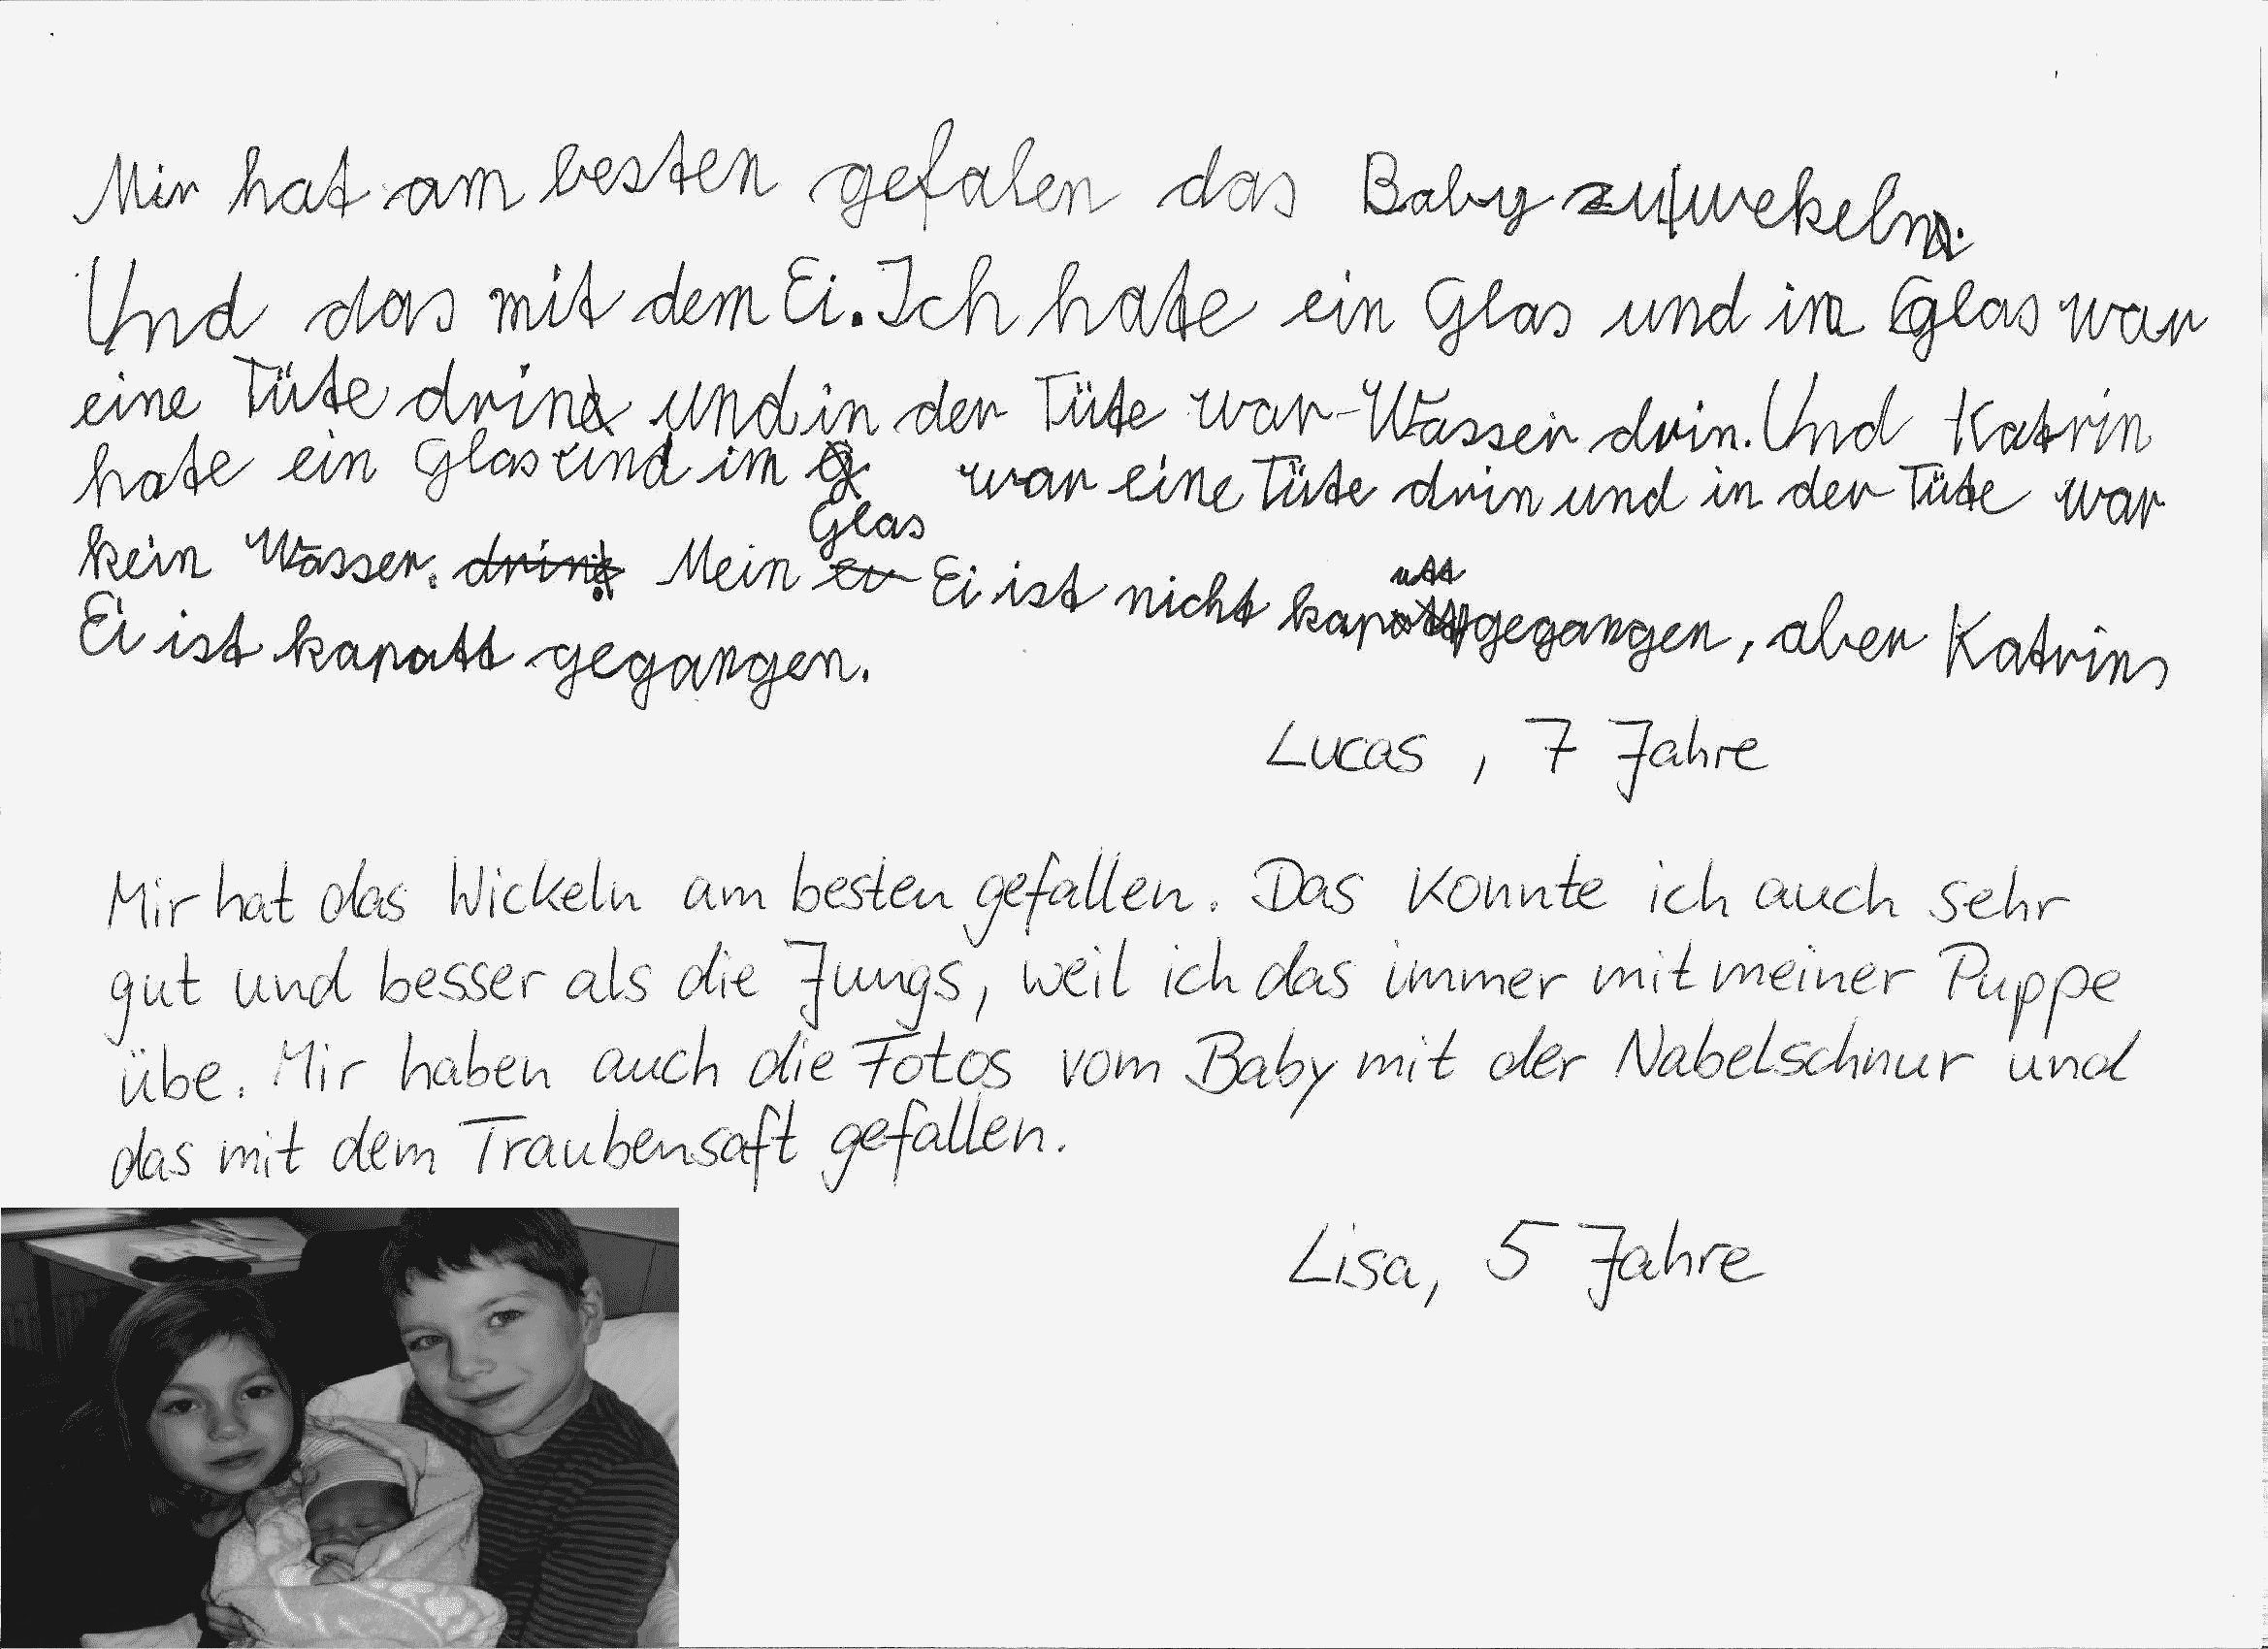 Mir hat am besten gefalen das Baby zu wekeln.
Und das mit dem Ei. Ich hate ein Glas und in Glas war
eine Tüte drin und in der Tüte war Wasser drin. Und Katrin
hate ein Glas und im Glas war eine Tüte drin und in der Tüte war
kein Wasser. Mein Ei ist nicht kapatt gegangen, aber Katrins
Ei ist kapatt gegangen.
Lucas, 7 Jahre
Mir hat das Wickeln am besten gefallen. Das konnte ich auch sehr
gut und besser als die Jungs, weil ich das immer mit meiner Puppe
übe. Mir haben auch die Fotos vom Baby mit der Nabelschnur und
das mit dem Traubensaft gefallen.
Lisa, 5 Jahre